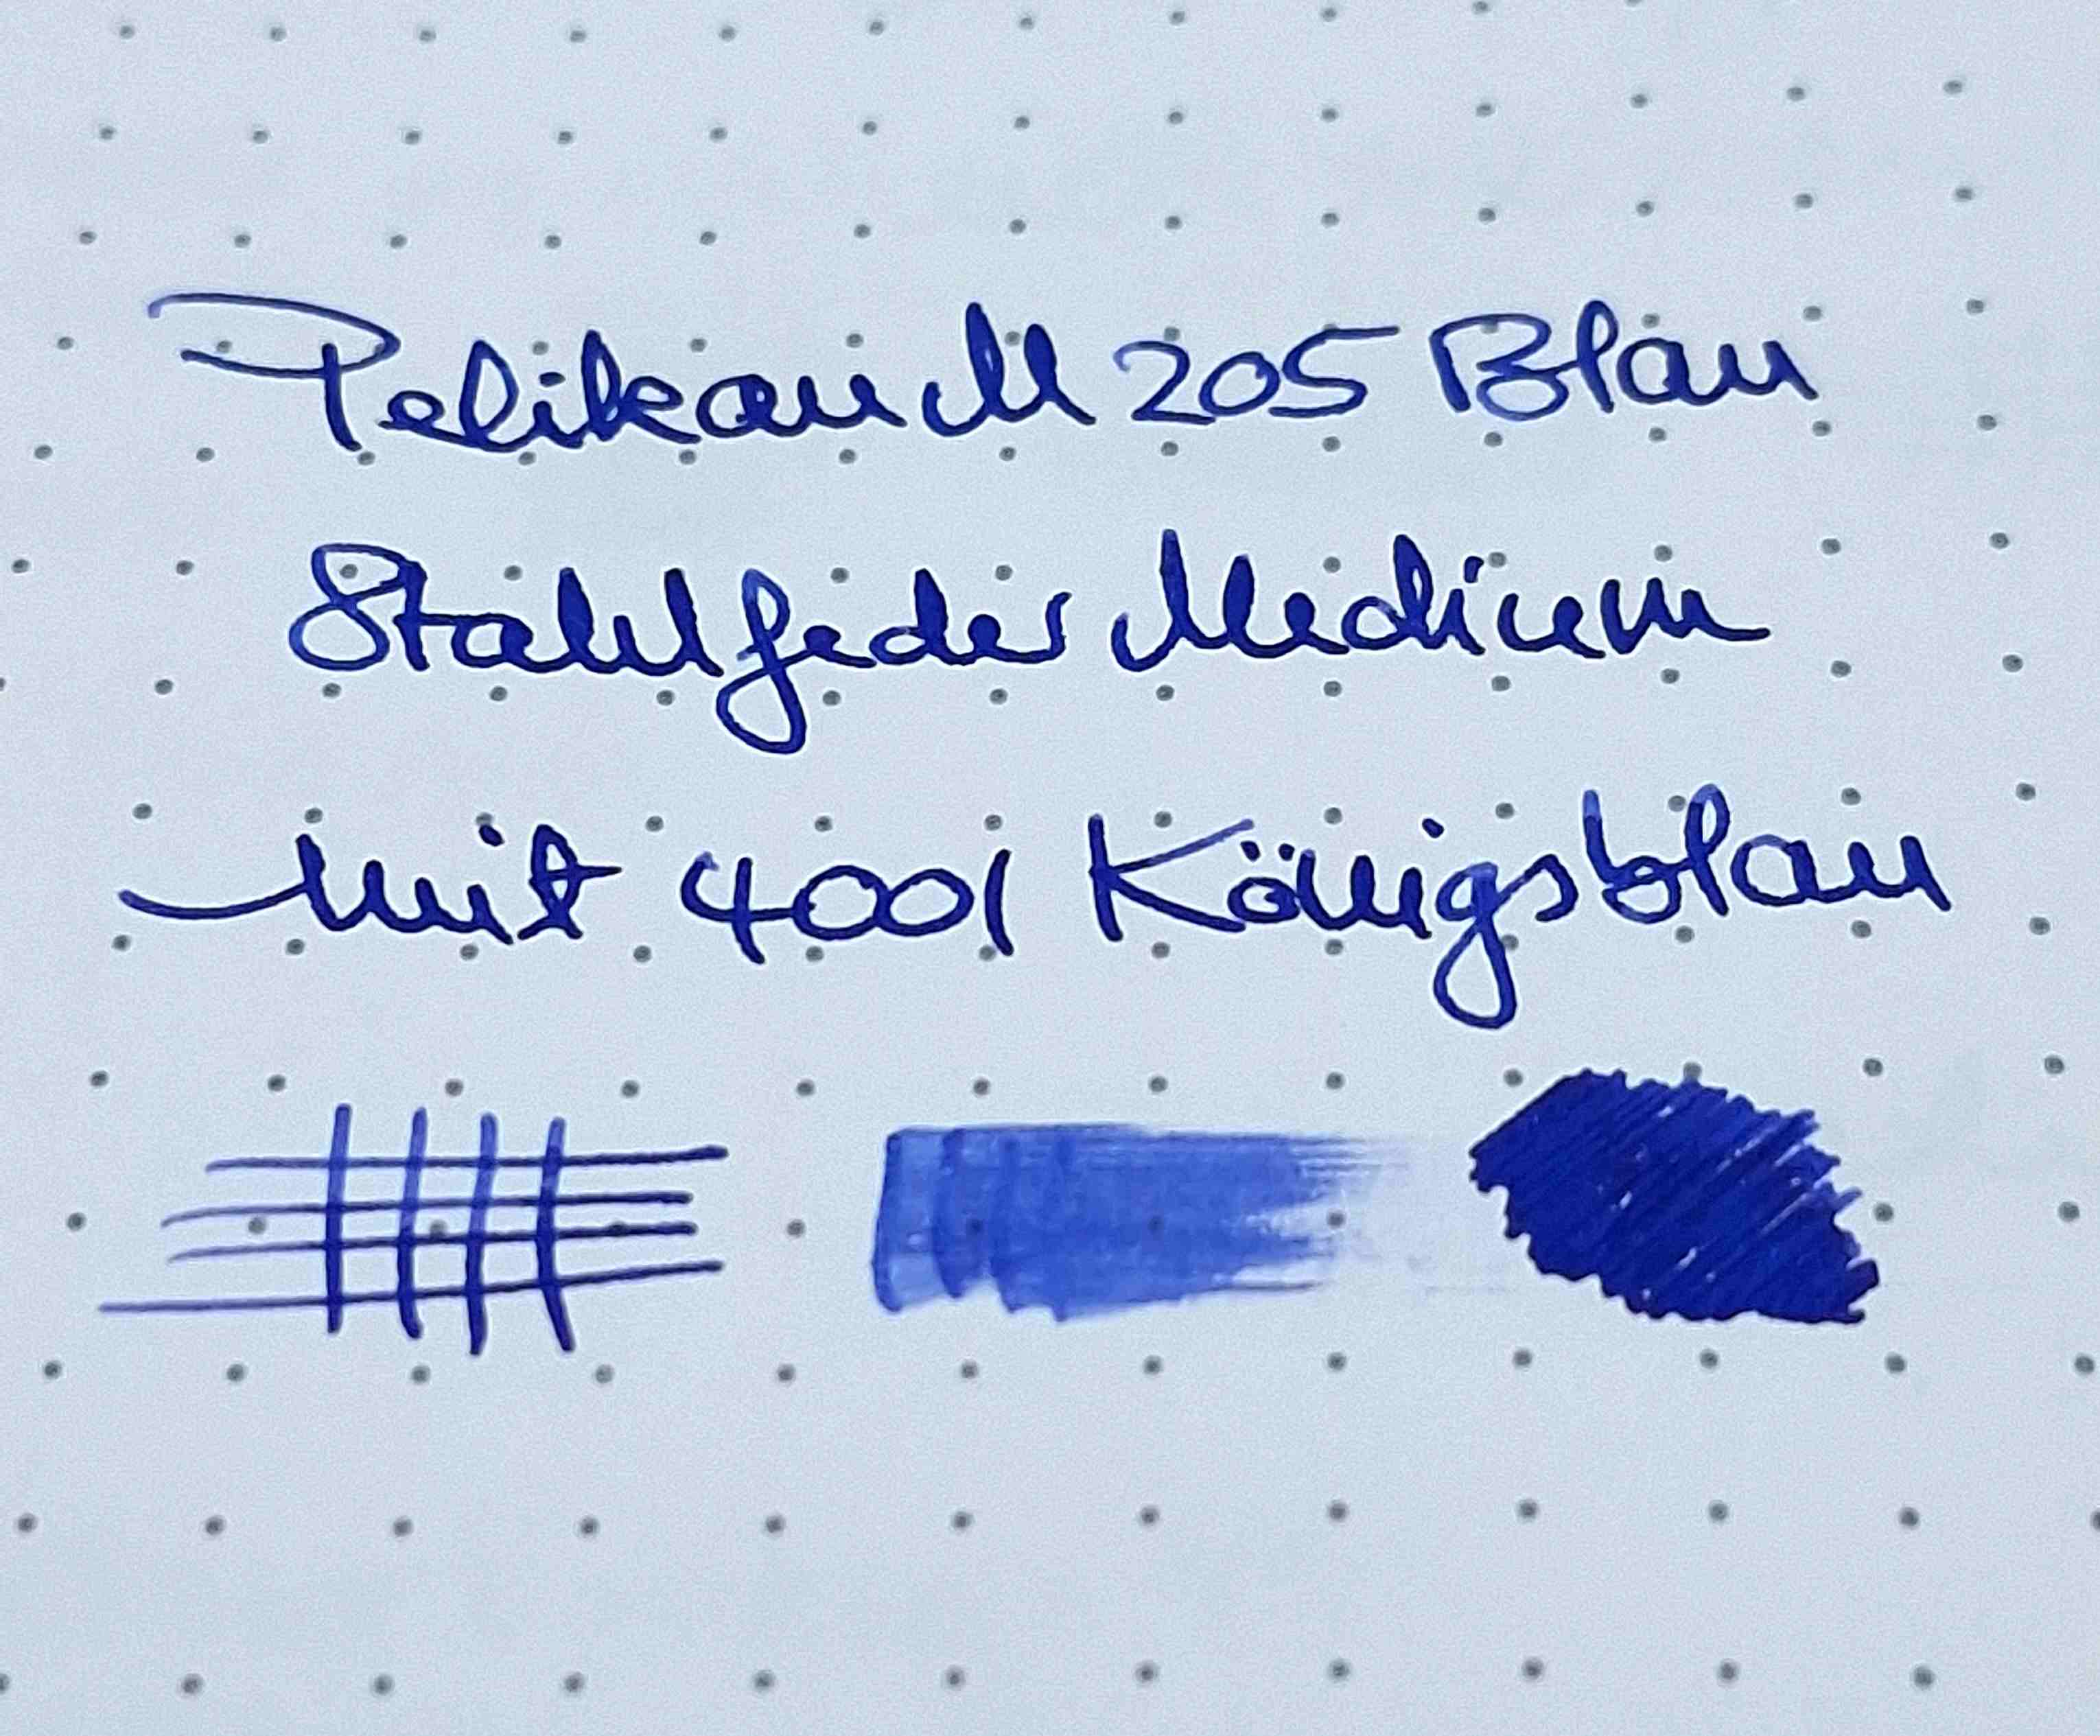 Pelikan M 205 Blau
Stahlfeder Medium
mit 4001 Königsblau